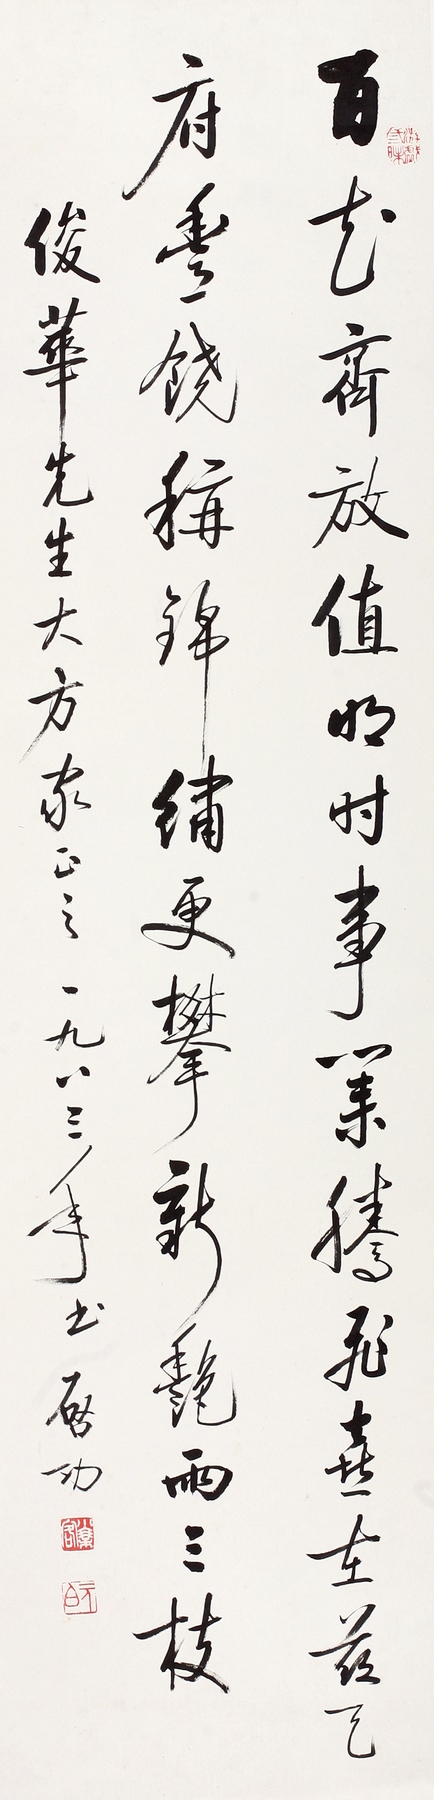 百花齊放值明时事業騰飛喜在茲天
府豊饒稱錦繡更攀新艷兩三枝
俊華先生大方家正之一九八三年书啓功